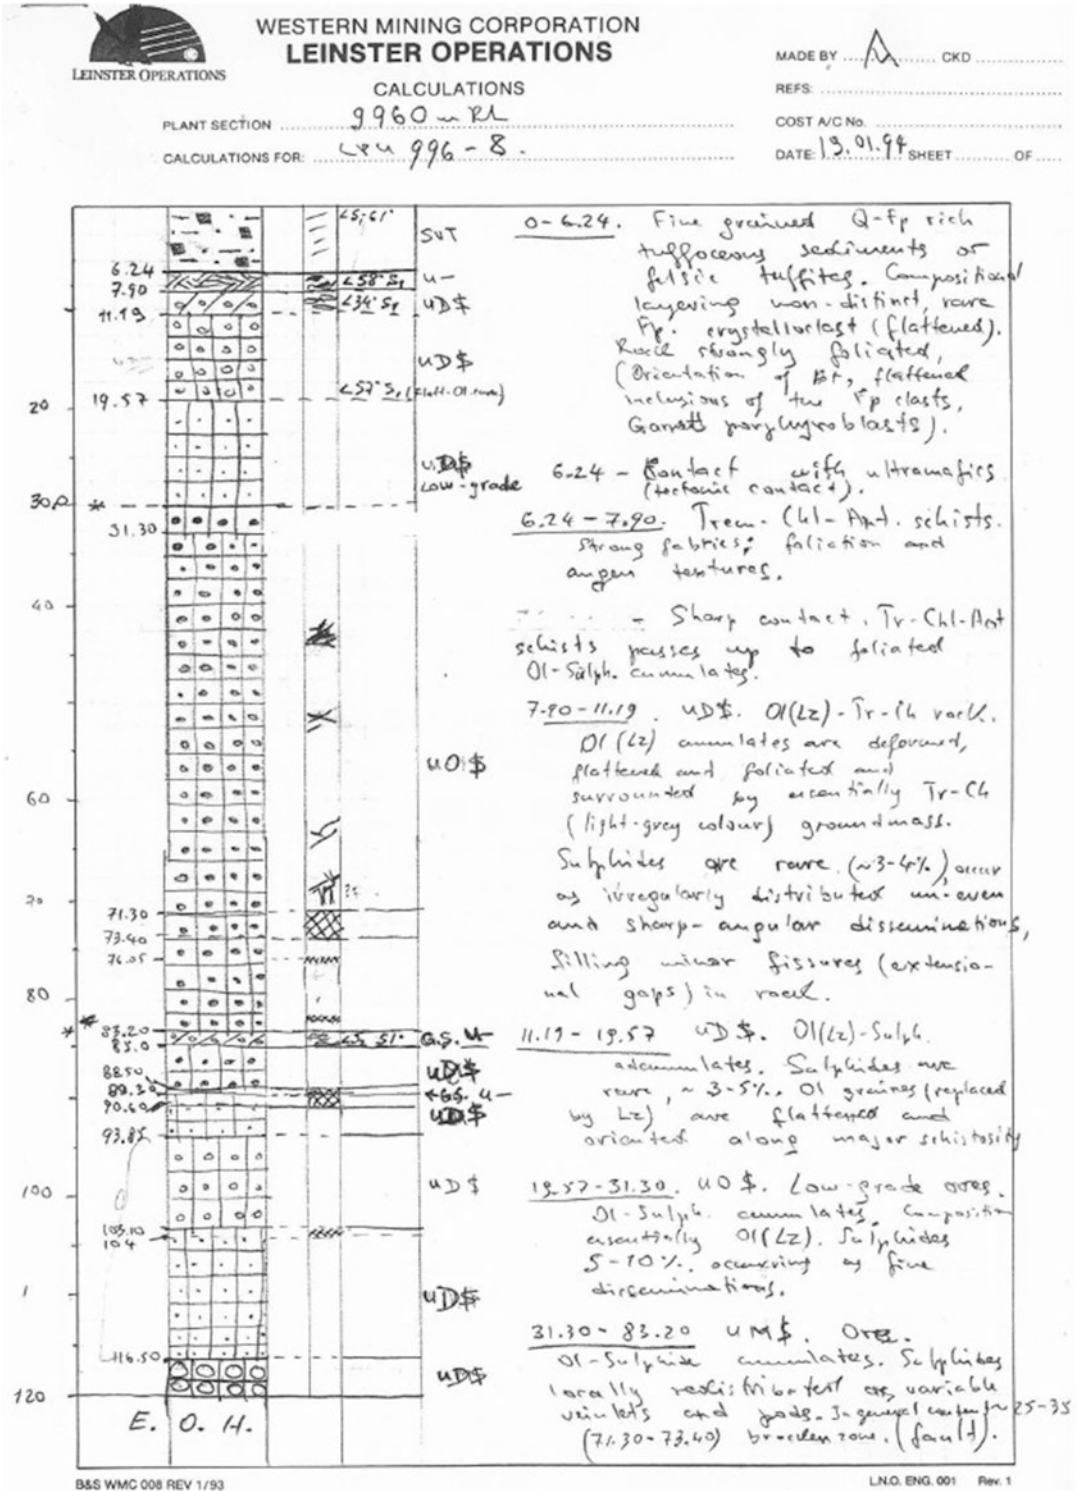 WESTERN MINING CORPORATION
LEINSTER OPERATIONS
LEINSTER OPERATIONS
CALCULATIONS
MADE BY CKD
REFS:
PLANT SECTION 9960 m RL
COST A/C No.
CALCULATIONS FOR: 996-8.
DATE: 19.01.94 SHEET OF
SVT
6.24
7.90 <58° S1 u-
11.19 <34° S1 UD$
UD$
19.57 <57° S1
20
UD$
Low-grade
30.0 *
31.30
40
UO$
60
71.30
73.40
76.05
80
*
83.20
85.0 G.S. u-
88.50 UD$
89.20 G.S. u-
90.60 UD$
93.85
100 UD$
103.10
104
UD$
116.50
UD$
120
E. O. H.
0-6.24. Fine grained Q-Fp rich
tuffoceous sediments or
felsic tuffites. Compositional
layering non-distinct, rare
Fp. crystalloclast (flattened).
Rock strongly foliated,
(Orientation of Bt, flattened
inclusions of the Fp clasts,
Garnet porphyroblasts).
6.24 - Contact with ultramafics
(tectonic contact).
6.24-7.90. Trem-Chl-Ant. schists.
Strong fabrics; foliation and
augen textures.
- Sharp contact. Tr-Chl-Ant
schists passes up to foliated
Ol-Sulph. cumulates.
7.90-11.19. UD$. Ol(Lz)-Tr-Ch rock.
Ol (Lz) cumulates are deformed,
flattened and foliated and
surrounded by essentially Tr-Ch
(light-grey colour) groundmass.
Sulphides are rare (~3-4%), occur
as irregularly distributed un-even
and sharp-angular disseminations,
filling minor fissures (extensio-
nal gaps) in rock.
11.19-19.57 UD$. Ol(Lz)-Sulph.
adcumulates. Sulphides are
rare, ~ 3-5%. Ol graines (replaced
by Lz) are flattened and
oriented along major schistosity
19.57-31.30. UO$. Low-grade ores.
Ol-Sulph. cumulates. Composition
essentially Ol(Lz). Sulphides
5-10%. occurring as fine
disseminations.
31.30-83.20 UM$. Ore.
Ol-Sulphide cumulates. Sulphides
locally redistributed as variable
veinlets and pods. In general content ~ 25-35
(71.30-73.40) broken zone. (fault).
B&S WMC 008 REV 1/93
L.N.O. ENG. 001 Rev. 1